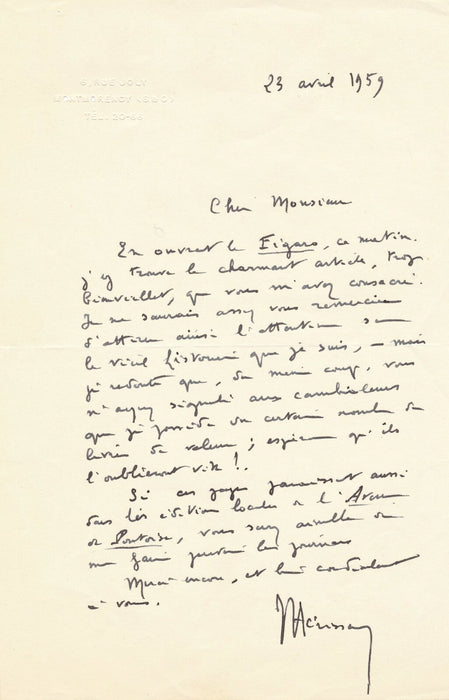 6, RUE JOLY
MONTMORENCY (S & O)
TÉL. 20-66
23 avril 1959
Cher Monsieur
En ouvrant le Figaro, ce matin,
j'y trouve le charmant article, trop
bienveillant, que vous m'avez consacré.
Je ne saurais assez vous remercier
d'attirer ainsi l'attention sur
le vieil historien que je suis, – mais
je redoute que, du même coup, vous
n'ayez signalé aux cambrioleurs
que je possède un certain nombre de
livres de valeur ; espérons qu'ils
l'oublieront vite !
Si ces pages paraissent aussi
dans les édition locales de l'
de Pontoise, vous serez aimable de
me faire parvenir les journaux
Merci encore, et bien cordialement
à vous.